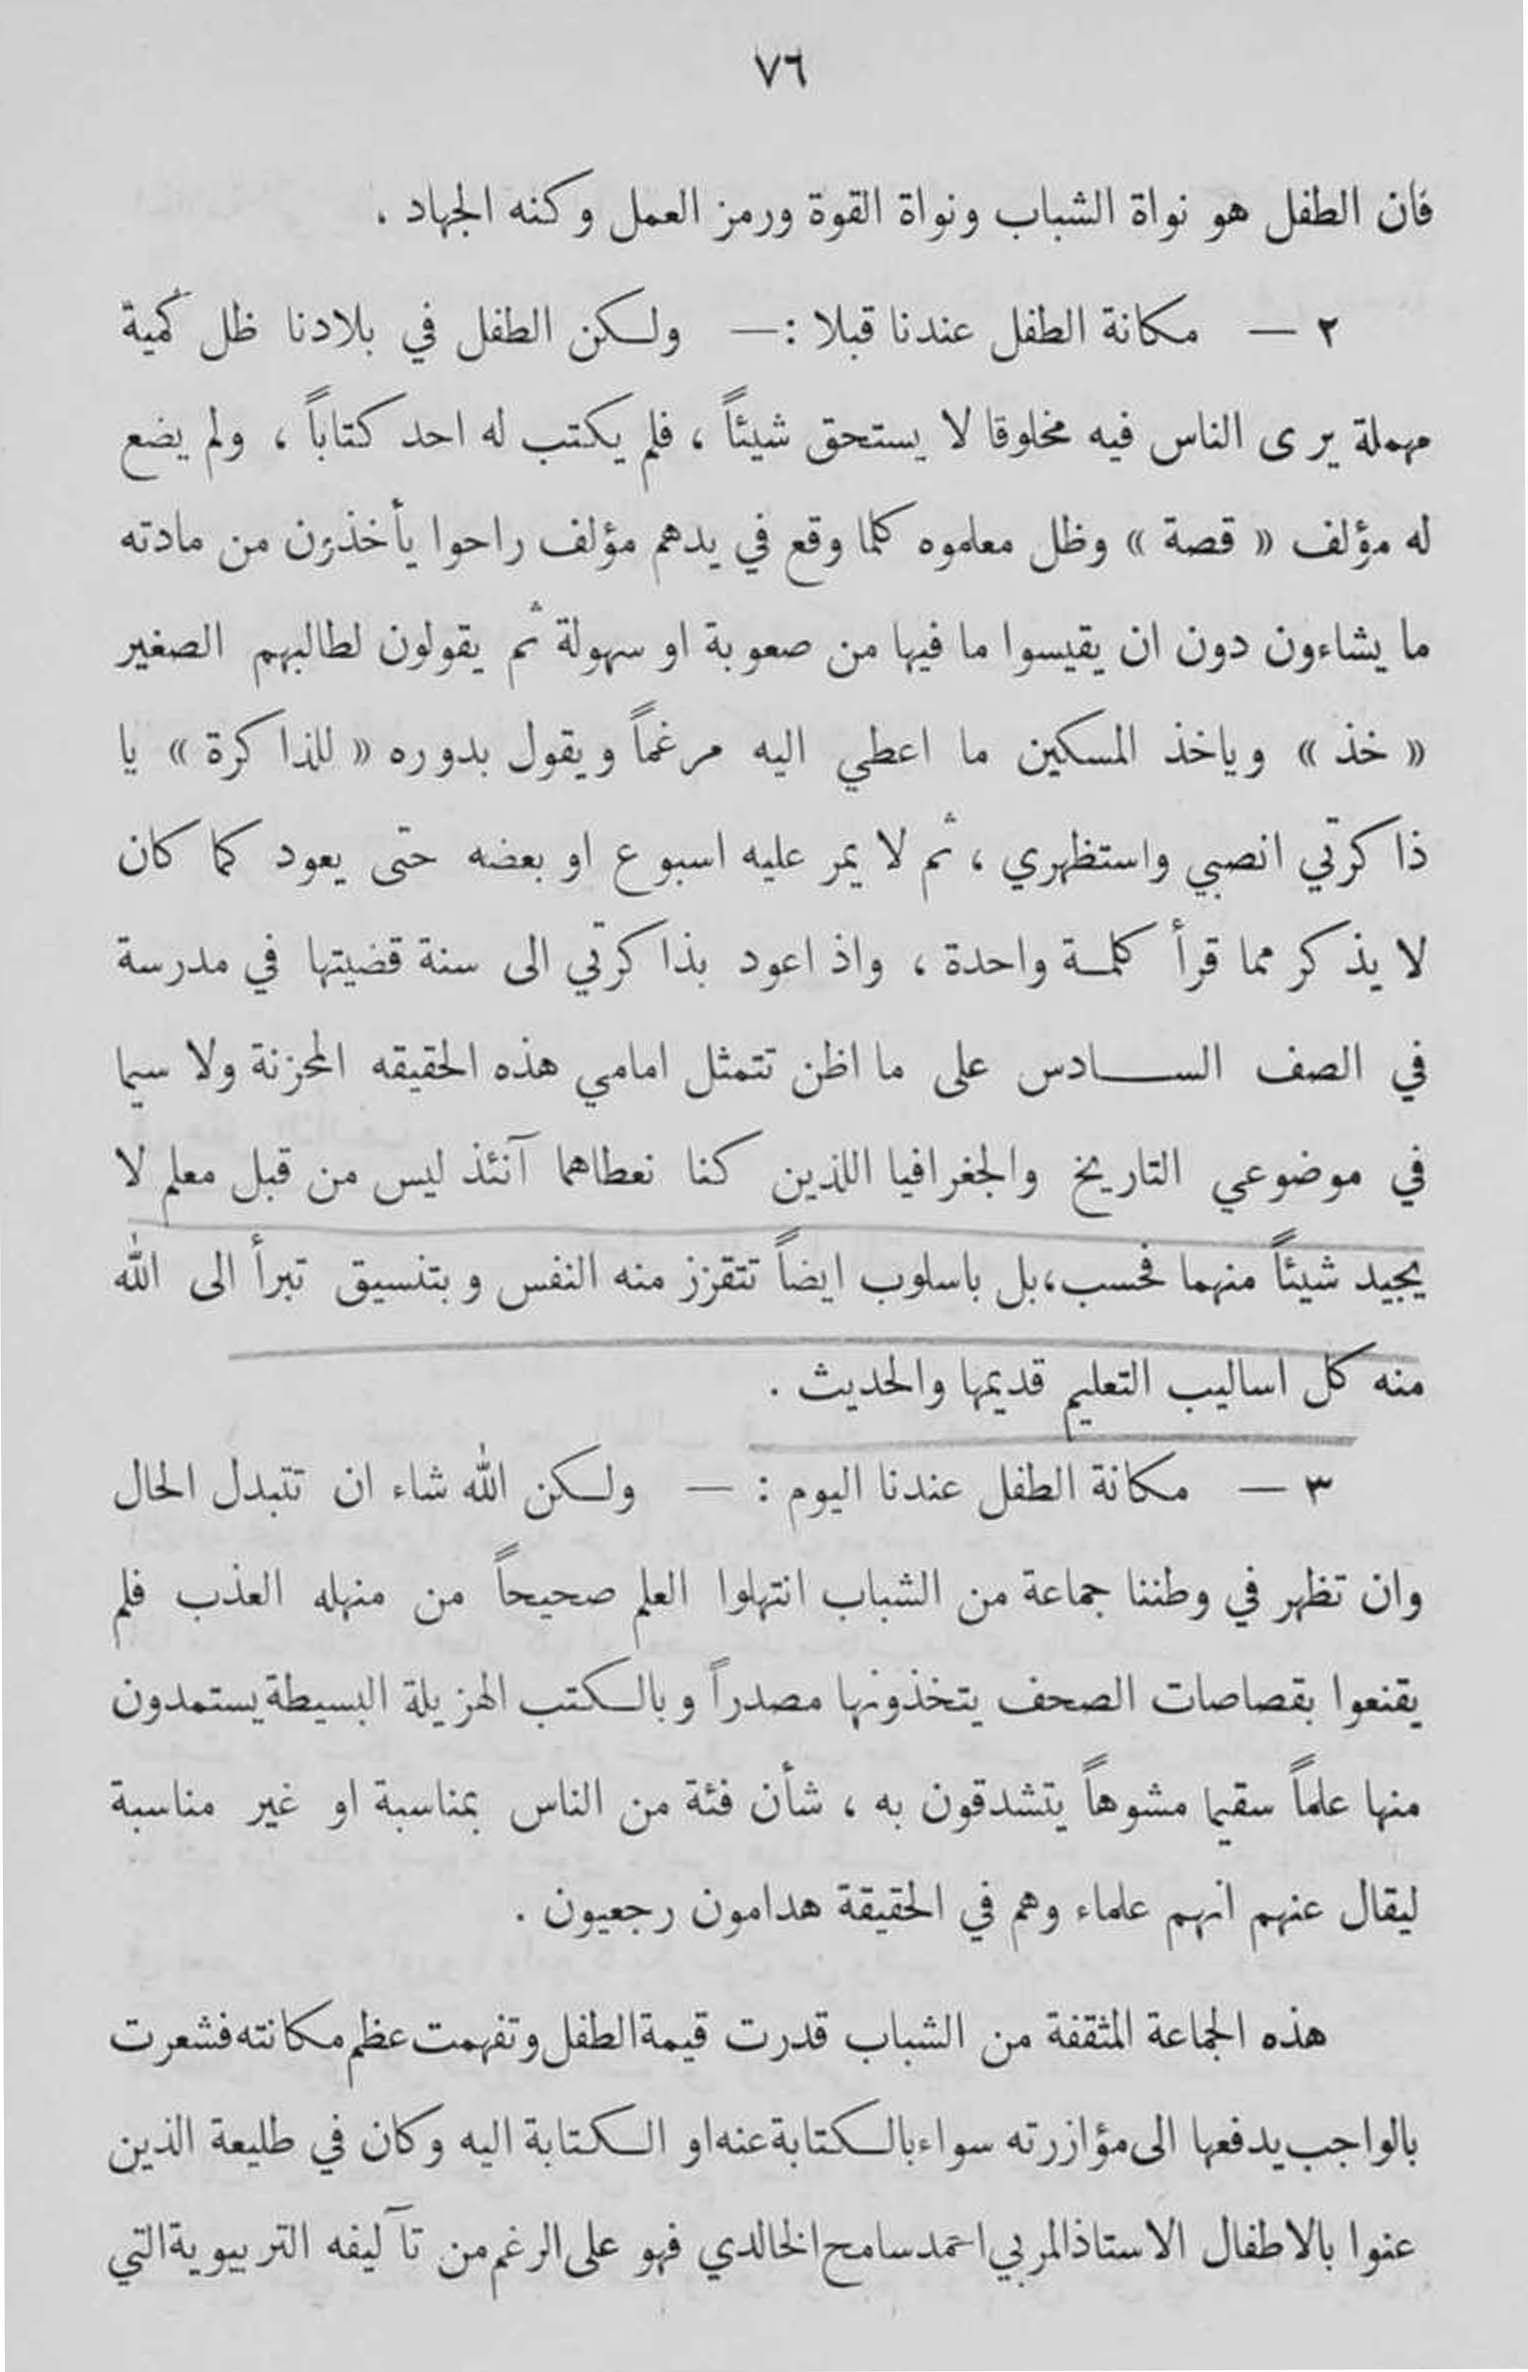 ٧٦
فان الطفل هو نواة الشباب ونواة القوة ورمز العمل وكنه الجهاد .
٢ — مكانة الطفل عندنا قبلا : — ولكن الطفل في بلادنا ظل كمية
مهملة يرى الناس فيه مخلوقا لا يستحق شيئاً ، فلم يكتب له احد كتاباً ، ولم يضع
له مؤلف « قصة » وظل معلموه كلما وقع في يدهم مؤلف راحوا يأخذون من مادته
ما يشاءون دون ان يقيسوا ما فيها من صعوبة او سهولة ثم يقولون لطالبهم الصغير
« خذ » وياخذ المسكين ما اعطي اليه مرغماً ويقول بدوره « للذاكرة » يا
ذاكرتي انصبي واستظهري ، ثم لا يمر عليه اسبوع او بعضه حتى يعود كما كان
لا يذكر مما قرأ كلمة واحدة ، واذ اعود بذاكرتي الى سنة قضيتها في مدرسة
في الصف السادس على ما اظن تتمثل امامي هذه الحقيقه المحزنة ولا سيما
في موضوعي التاريخ والجغرافيا اللذين كنا نعطاهما آنئذ ليس من قبل معلم لا
يجيد شيئاً منهما فحسب، بل باسلوب ايضاً تتقزز منه النفس وبتنسيق تبرأ الى الله
منه كل اساليب التعليم قديمها والحديث .
٣ — مكانة الطفل عندنا اليوم : — ولكن الله شاء ان تتبدل الحال
وان تظهر في وطننا جماعة من الشباب انتهلوا العلم صحيحاً من منهله العذب فلم
يقنعوا بقصاصات الصحف يتخذونها مصدراً وبالكتب الهزيلة البسيطة يستمدون
منها علماً سقيما مشوهاً يتشدقون به ، شأن فئة من الناس بمناسبة او غير مناسبة
ليقال عنهم انهم علماء وهم في الحقيقة هدامون رجعيون .
هذه الجماعة المثقفة من الشباب قدرت قيمة الطفل وتفهمت عظم مكانته فشعرت
بالواجب يدفعها الى مؤازرته سواء بالكتابة عنه او الكتابة اليه وكان في طليعة الذين
عنوا بالاطفال الاستاذ المربي احمد سامح الخالدي فهو على الرغم من تآليفه التربيوية التي